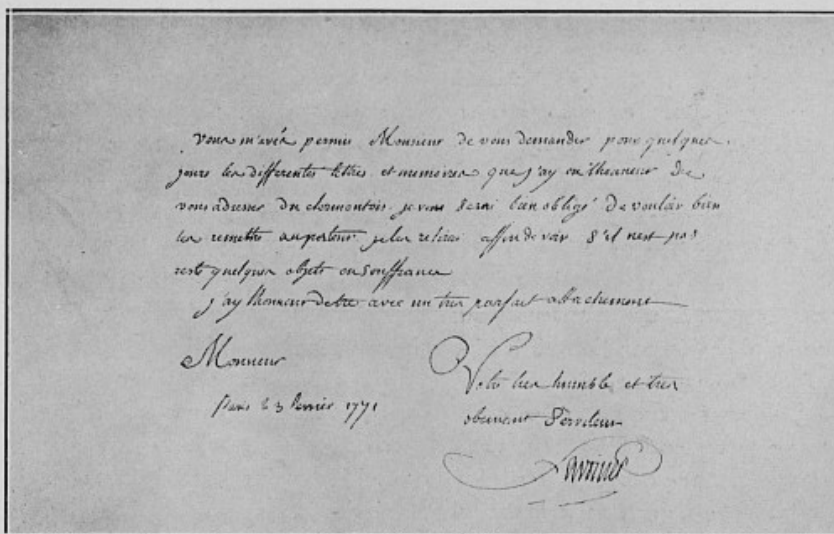 vous m'avés permis Monsieur de vous demander pour quelques
jours les differentes lettres et memoires que j'ay eu lhonneur de
vous adresser du clermontois. je vous serai bien obligé de vouloir bien
les remettre au porteur je les relirai affin de voir s'il nest pas
resté quelques objets en souffrance
j'ay lhonneur detre avec un tres parfait attachement
Monsieur
Votre tres humble et tres
Paris le 3 fevrier 1771
obeissant Serviteur
Lavoisier